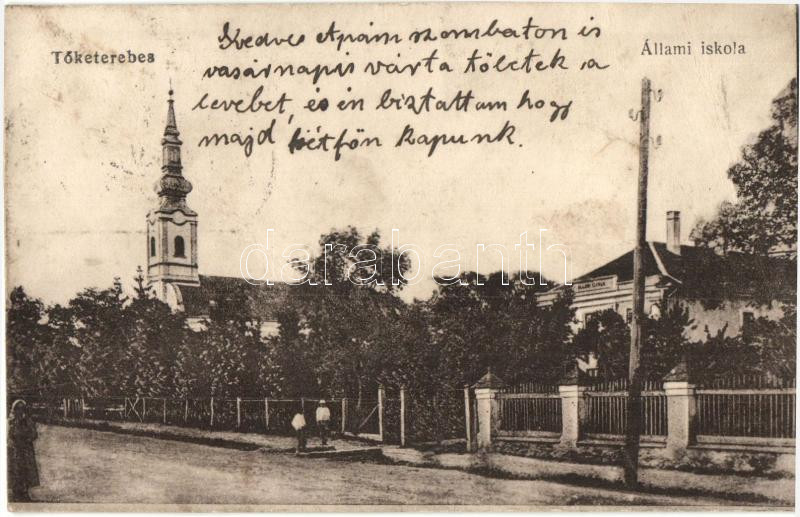 Tőketerebes
Állami iskola
Kedves Apám szombaton is
vasárnapis várta töletek a
levebet, és én biztattam hogy
majd, hétfőn kapunk.
darabanth